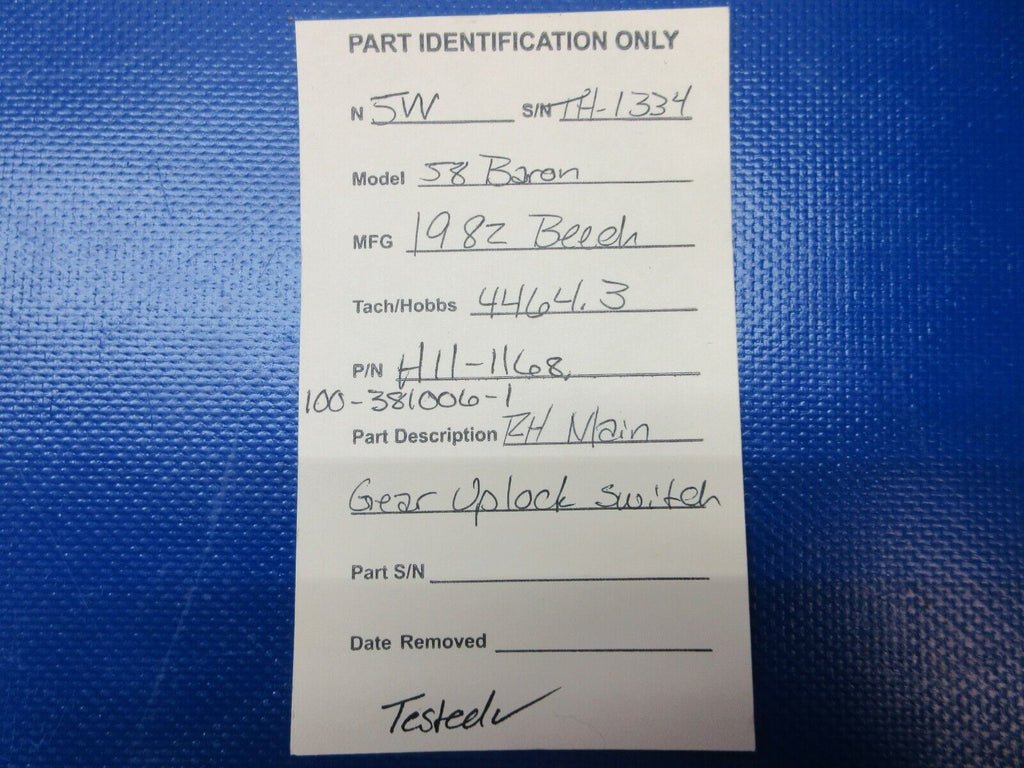 PART IDENTIFICATION ONLY
N 5W S/N TH-1334
Model 58 Baron
MFG 1982 Beech
Tach/Hobbs 4464.3
P/N H11-1168,
100-381006-1
Part Description RH Main
Gear Uplock Switch
Part S/N
Date Removed
Tested✓